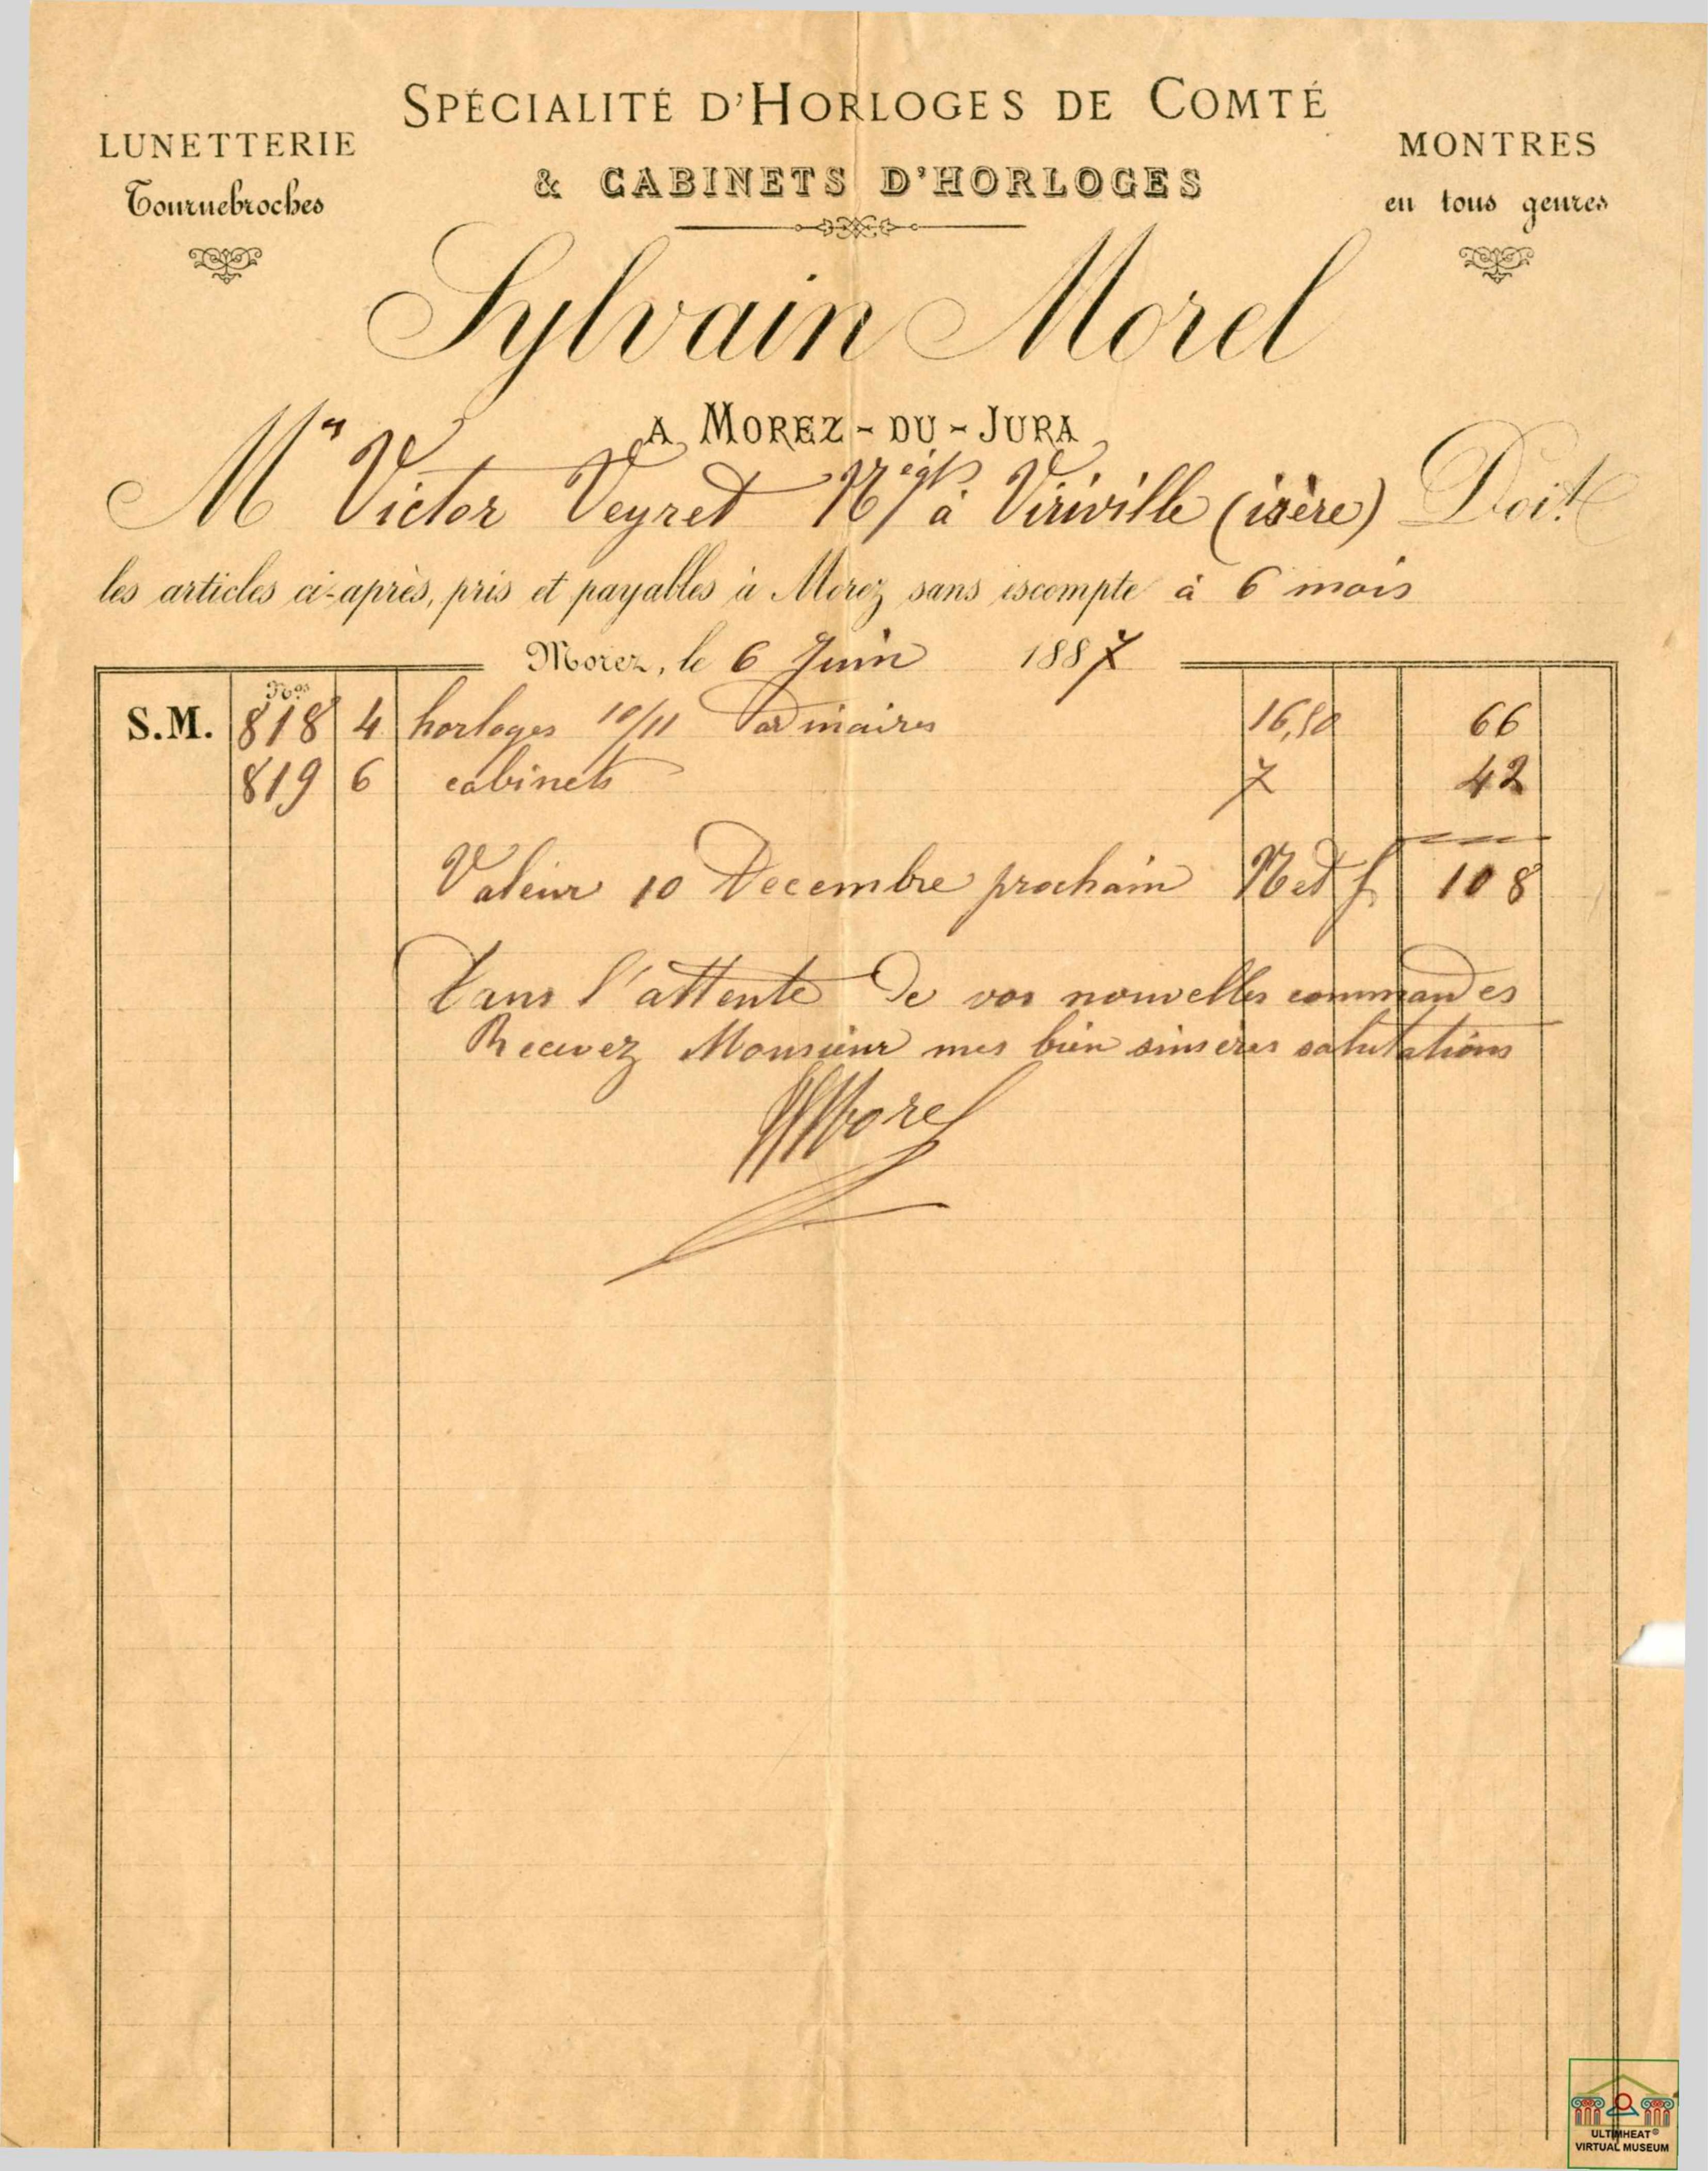 SPÉCIALITÉ D'HORLOGES DE COMTÉ
& CABINETS D'HORLOGES
LUNETTERIE
Tournebroches
MONTRES
en tous genres
Sylvain Morel
A MOREZ-DU-JURA
Mr Victor Veyret Négt à Viriville (isère) Doit
les articles ci-après, pris et payables à Morez sans escompte à 6 mois
Morez, le 6 Juin 1887
Nos
S.M. 818 4 horloges 10/11 ordinaires 16,50 66
819 6 cabinets 7 42
Valeur 10 Decembre prochain Net f 108
Dans l'attente de vos nouvelles commandes
Recevez Monsieur mes bien sinseres salutations
SMorel
ULTIMHEAT®
VIRTUAL MUSEUM